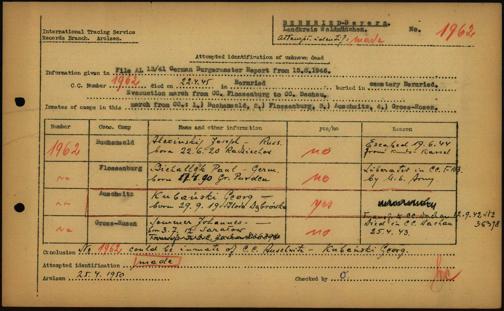 BERNRIED-Bavern
Landkreis Waldmünchen.
International Tracing Service
Records Branch. Arolsen.
Attempt. identif. made
No. 1962
Attempted identification of unknown dead
Information given in File AL 13/41 German Burgermaster Report from 15.6.1946.
C.C. Number 1962 died on 22.4.45 in Bernried buried in cemetery Bernried.
Evacuation march from CC. Flossenburg to CC. Dachau.
Inmates of camps in this march from CC.: 1.) Buchenwald, 2.) Flossenburg, 3.) Auschwitz, 4.) Gross-Rosen.
Number Conc. Camp Name and other information yes/no Reason
1962 Buchenwald Joseph - Russ. no Escaped 19.6.44
born 22.6.20 from Kassel
Flossenburg Paul - Germ. no Liberated in CC.
born by U.S. Army
Auschwitz Kubański Georg yes
born 29.9.19
Gross-Rosen Sommer Johannes - no Transf. to CC. Dachau
born 3.7. Saratow died in CC. Dachau
25.4.43.
Conclusion No 1962 could be inmate of C.C. Auschwitz - Kubański Georg.
Attempted identification made
Arolsen 25.4.1950 Checked by